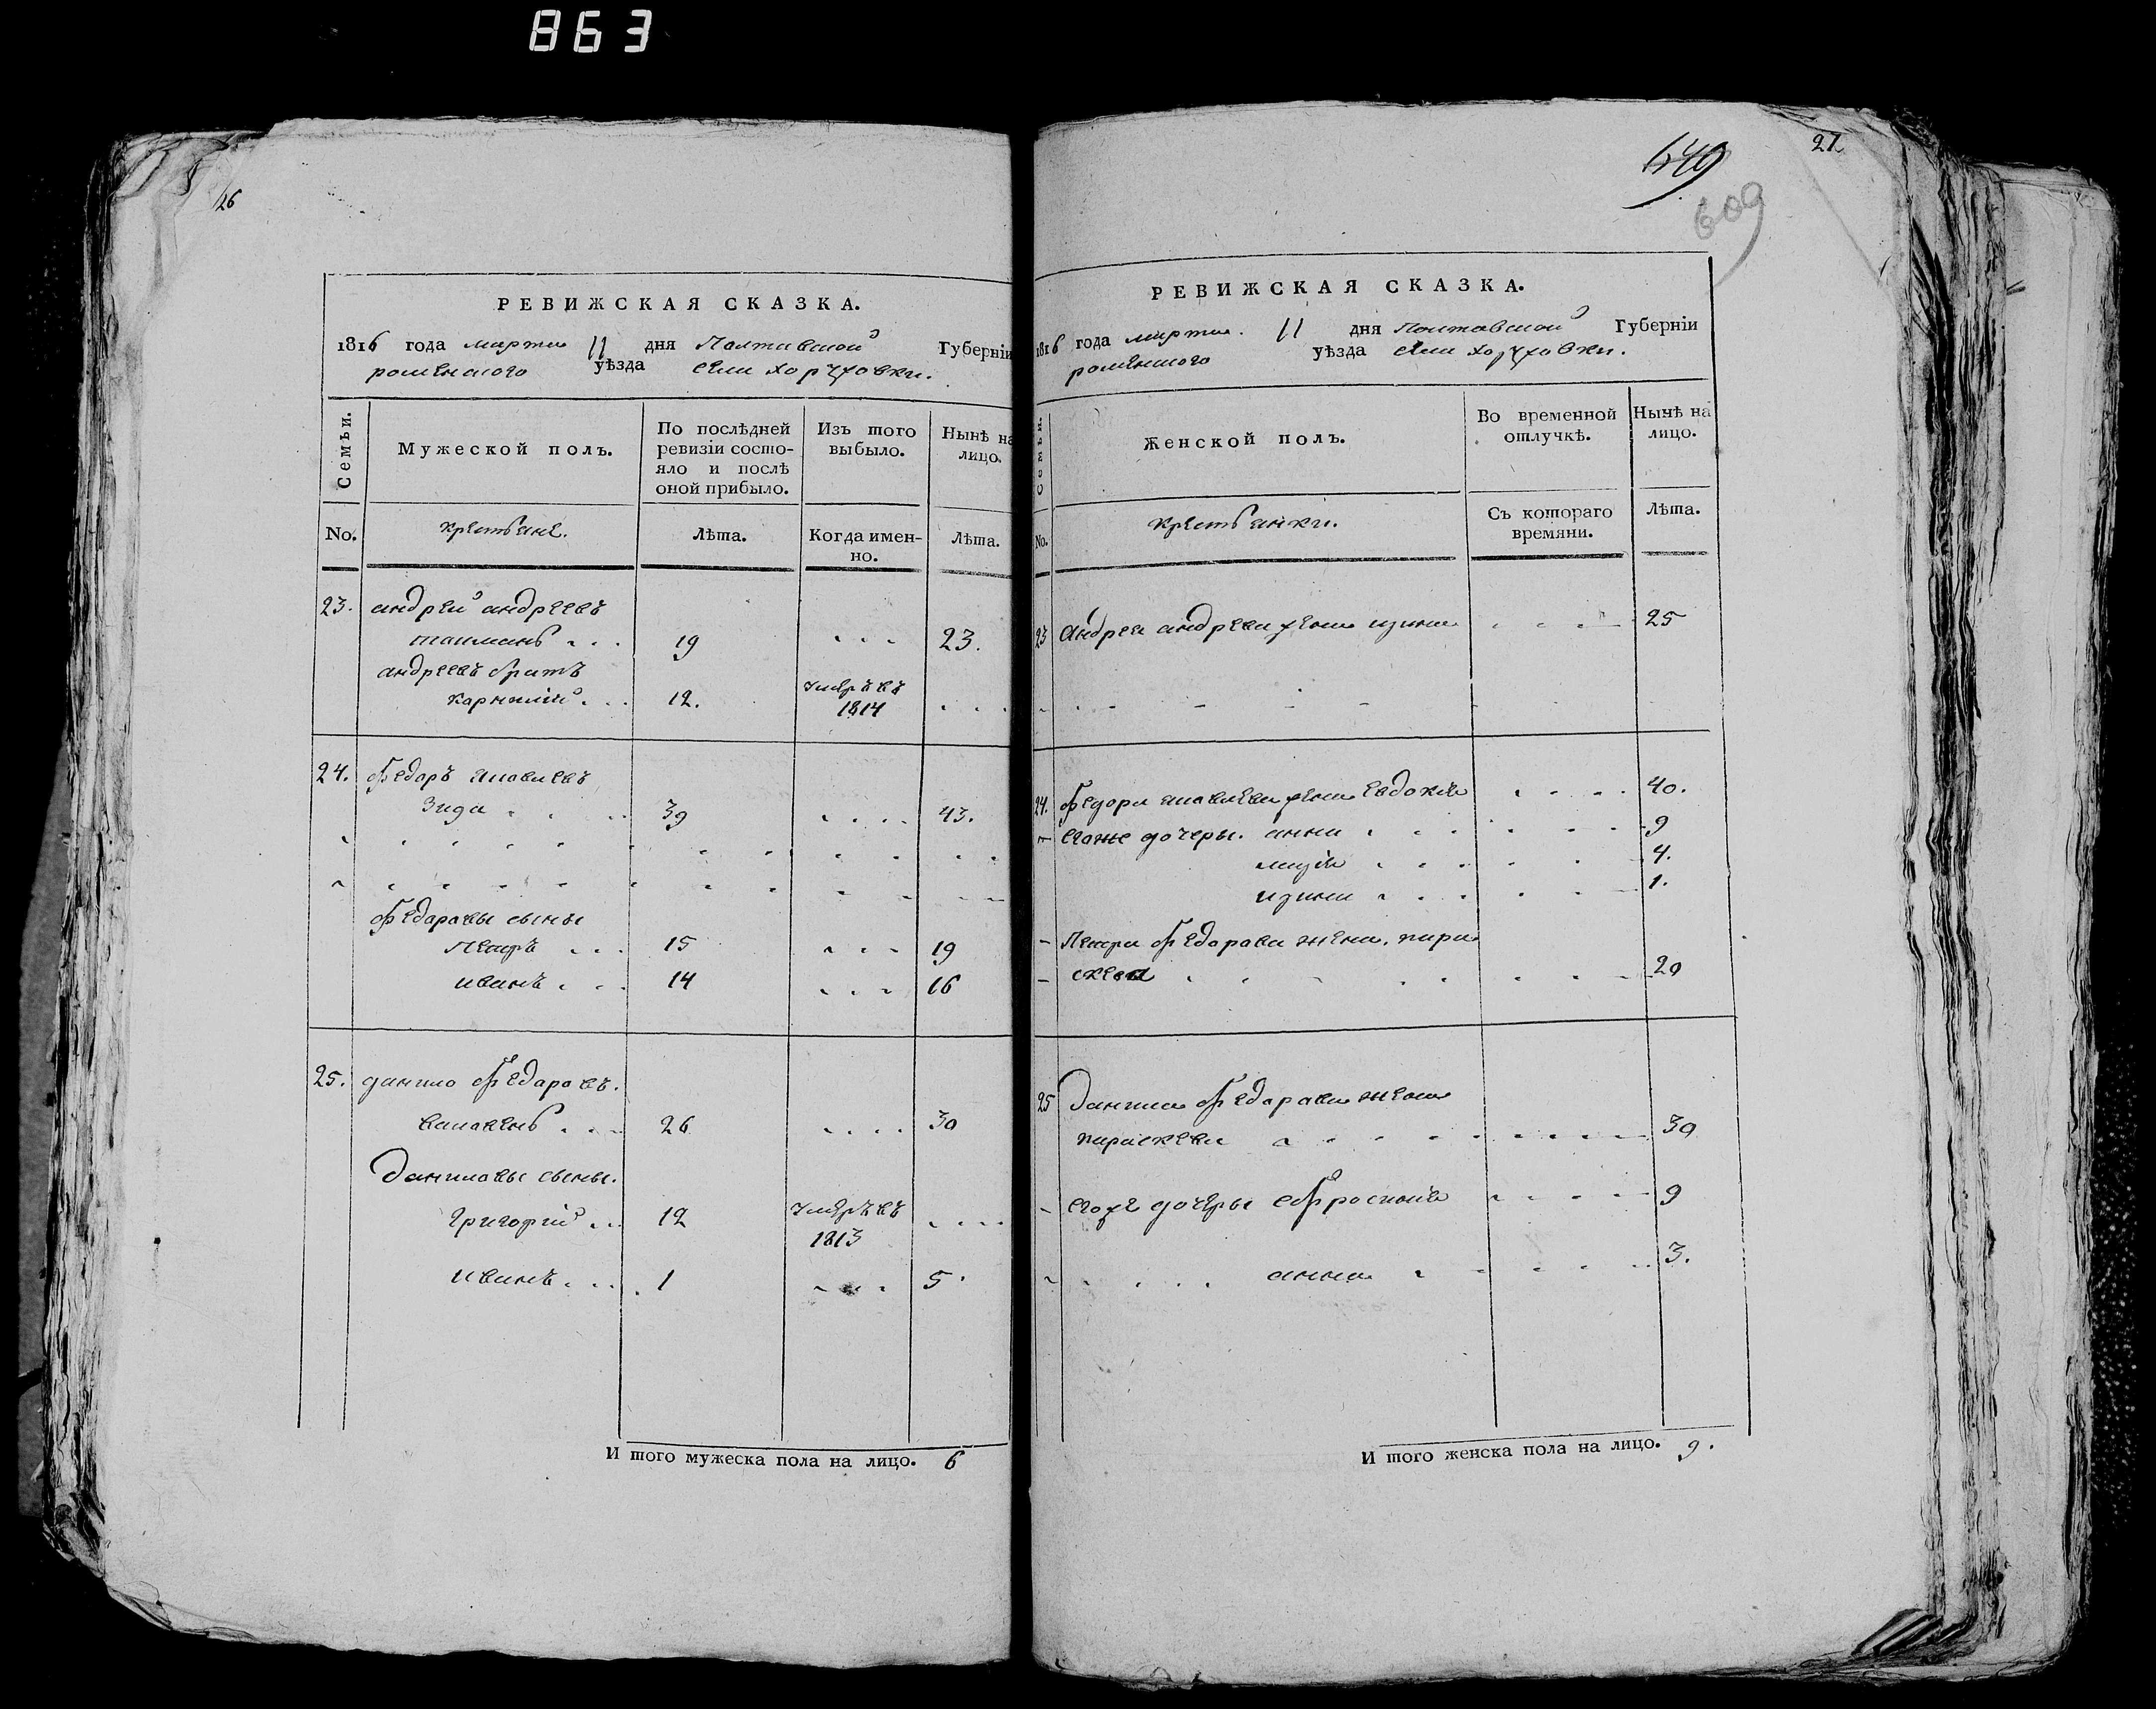 863
26
РЕВИЖСКАЯ СКАЗКА.
1816 года марта 11 дня Полтавской Губерніи
роменского уѣзда села хоружовки.
Семьи.
Мужеской полъ.
По послѣдней ревизіи состо-
яло и послѣ
оной прибыло.
Изъ того
выбыло.
Нынѣ на
лицо.
No.
крестьяне.
Лѣта.
Когда имен-
но.
Лѣта.
23. андрей андреевъ
19 23.
андреевъ братъ
карнилій 12. умеръ въ 1814
24. федоръ яковлевъ
39 43.
федоровы сыны
петръ 15 19
иванъ 14 16
25. данило федоровъ.
26 30
даниловы сыны.
григорій 12 умеръ въ 1813
иванъ 1 5.
И того мужеска пола на лицо. 6
27
649
609
РЕВИЖСКАЯ СКАЗКА.
1816 года марта 11 дня Полтавской Губерніи
роменского уѣзда села хоружовки.
Семьи.
Женской полъ.
Во временной
отлучкѣ.
Нынѣ на
лицо.
No.
крестьянки.
Съ котораго
времяни.
Лѣта.
23 Андрея андреева жена ирина 25
24. федора яковлева жена евдокія 40.
его же дочеры. анна 9
марія 4.
ирина 1.
Петра федорова жена. пара
скева 20
25 данила федорова жена
параскева 30
его же дочеры ефросинія 9
анна 3.
И того женска пола на лицо. 9.